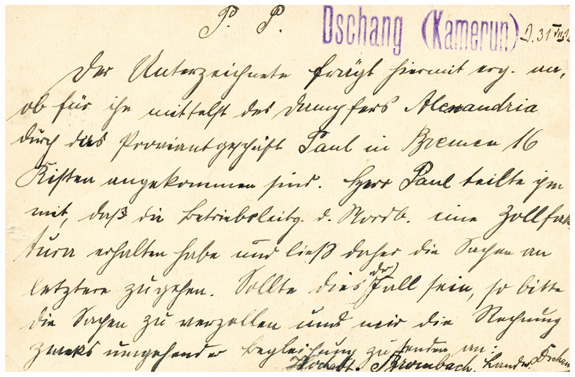 P. P.
Dschang (Kamerun) d. 31
Der Unterzeichnete frägt hiermit erg. an,
ob für ihn mittelst des Dampfers Alexandria
durch das Proviantgeschäft Paul in Bremen 16
Kisten angekommen sind. Herr Paul teilte ihm
mit, daß die Betriebsleitg. d. Nordb. eine Zollfak-
tura erhalten habe und ließ daher die Sachen an
letztere zugehen. Sollte dies der Fall sein, so bitte
die Sachen zu verzollen und mir die Rechnung
zwecks umgehender Begleichung zu senden an:
Dschang